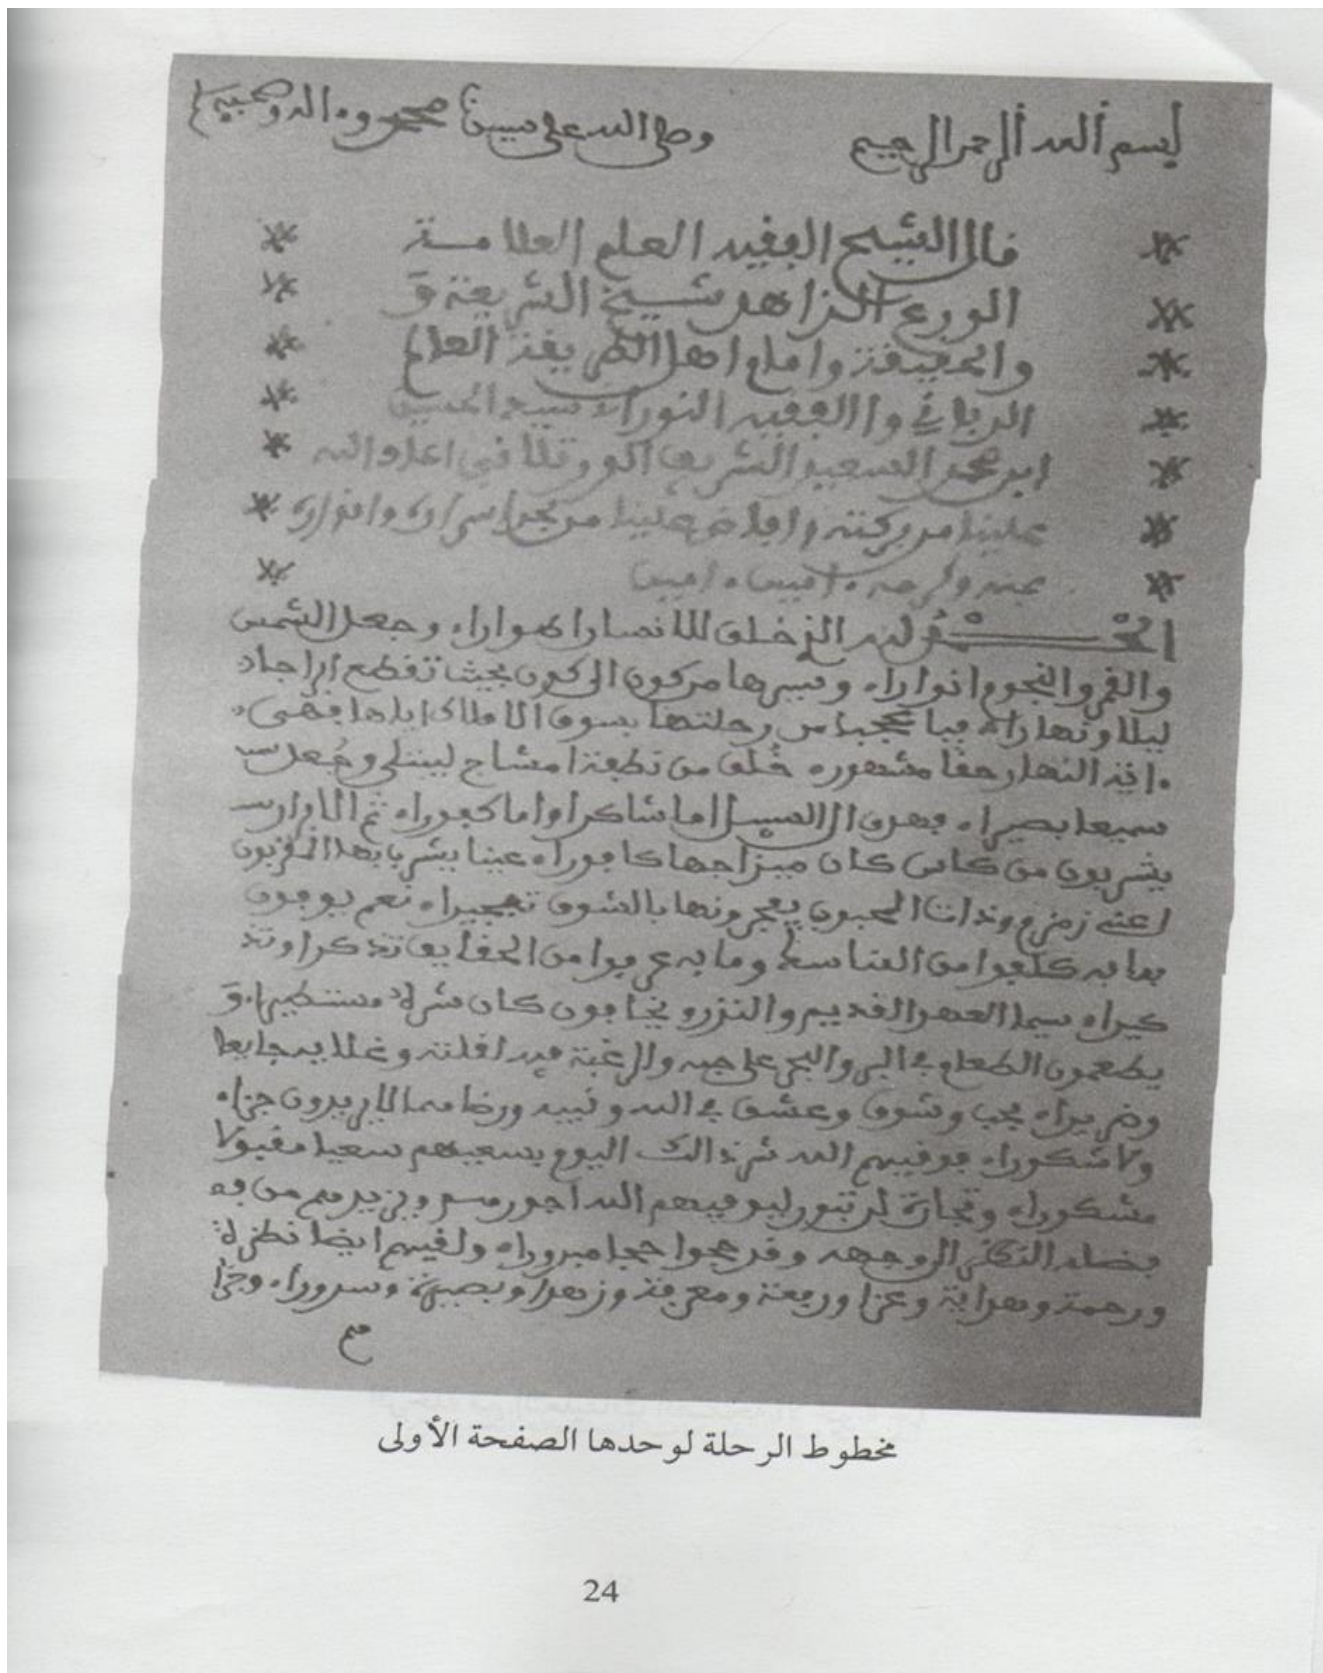 بسم الله الرحمن الرحيم وصلى الله على سيدنا محمد وءاله وصحبه
قال الشيخ الفقيه العلم العلامة
الورع الزاهد شيخ الشريعة و
والحقيقة وامام اهل الطريقة العالم
الرباني والفقيه النوراني سيد الحسين
ابن محمد السعيد الشريف الورتلاني اعاد الله
علينا من بركته وافاض علينا من بحر اسراره وانواره
بمنه وكرمه ءامين ءامين
الحمد لله الذي خلق للانسان اطوارا وجعل الشمس
والقمر والنجوم انوارا وسيرها من كون الى كون بحيث تقطع ابراجاد
ليلا ونهارا فيا عجبا من رحلتها بسوق الاملاك اياها فهي
ءاية النهار حقا مشهورة خلق من نطفة امشاج ليبتلى وجعل
سميعا بصيرا فهدي الى السبيل اما شاكرا واما كفورا ثم الابرار
يشربون من كاس كان مزاجها كافورا عينا يشرب بها المقربون
اعني زمزم وذات المحبوب يفجرونها بالشوق تفجيرا نعم يوفون
بما به كلفوا من المناسك وما به عرفوا من الحقايق تذكرا وتذ
كيرا سيما العهد القديم والنذر ويخافون كان شره مستطيرا و
يطعمون الطعام في البر والبحر على حبه والرغبة فيه لقلته وغلايه جايعا
وضريرا بحب وشوق وعشق في الله ونبيه ورضاهما لا يريدون جزاء
ولا شكورا فوقيهم الله شر ذالك اليوم بسعيهم سعيا مقبولا
مشكورا وتجارة لن تبور ليوفيهم الله اجورهم ويزيدهم من
فضله النظر الى وجهه وقد حجوا حجا مبرورا ولقيهم ايضا نظرة
ورحمة وهداية وعزا ورفعة ومعرفة وزهدا وبصيرة وسرورا وجزا
هم
مخطوط الرحلة لوحدها الصفحة الأولى
24